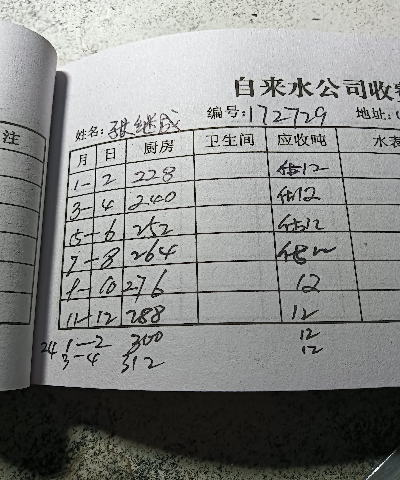 自来水公司收
姓名: 张继成 编号: 172729 地址:
注
月 日 厨房 卫生间 应收吨 水表
1-2 228 估12
3-4 240 估12
5-6 252 估12
7-8 264 估12
9-10 276 12
11-12 288 12
24 1-2 300 12
3-4 312 12